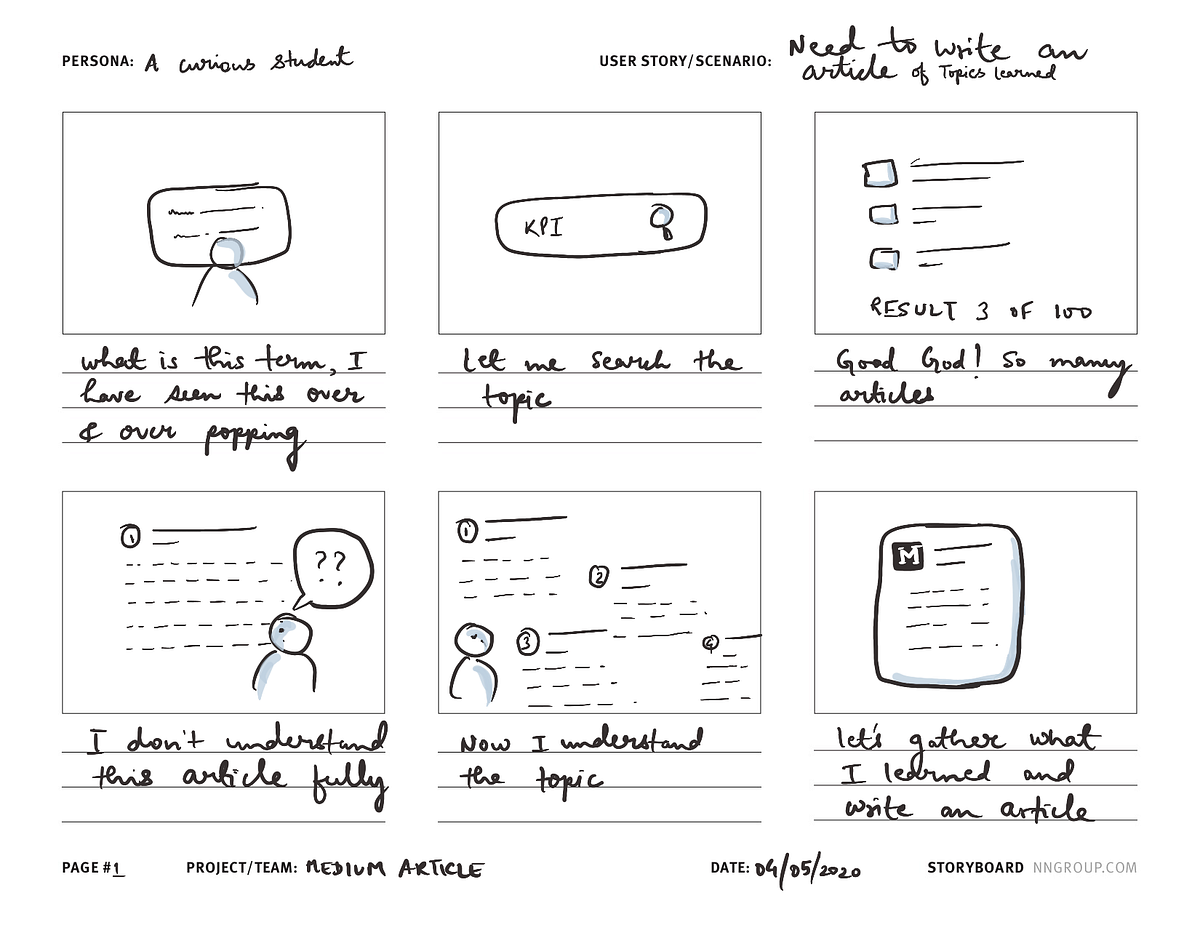 PERSONA: A curious student
USER STORY/SCENARIO: Need to write an
article of Topics learned
KPI
RESULT 3 OF 100
what is this term, I
have seen this over
& over popping
Let me search the
topic
Good God! So many
articles
1
??
1
2
3
4
M
I don't understand
this article fully
Now I understand
the topic
let's gather what
I learned and
write an article
PAGE #1
PROJECT/TEAM: MEDIUM ARTICLE
DATE: 04/05/2020
STORYBOARD NNGROUP.COM